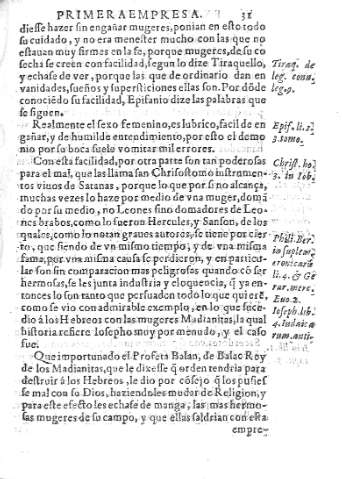 PRIMERA EMPRESA. 31
diesse hazer sin engañar mugeres, ponian en esto todo
su cuidado, y no era menester mucho con las que no
estauan muy firmes en la fe, porque mugeres, de su co
secha se creen con facilidad, segun lo dize Tiraquello,
y echase de ver, porque las que de ordinario dan en
vanidades, sueños y supersticiones ellas son. Por dōde
conociēdo su facilidad, Epifanio dize las palabras que
se siguen.
Tiraq. de
leg. conu.
leg. 9.
Realmente el sexo femenino, es lubrico, facil de en
gañar, y de humilde entendimiento, por esto el demo
nio por su boca suele vomitar mil errores.
Epif. li. 2.
3. tomo.
Con esta facilidad, por otra parte son tan poderosas
para el mal, que las llama san Chrisostomo instrumen-
tos viuos de Satanas, porque lo que por si no alcança,
muchas vezes lo haze por medio de vna muger, domā
do por su medio, no Leones sino domadores de Leo-
nes brabos, como lo fueron Hercules, y Sanson, de los
quales, como lo notan graues autores, se tiene por cier
to, que siendo de vn mismo tiempo, y de vna misma
fama, por vna misma causa se perdieron, y en particu-
lar son sin comparacion mas peligrosas quando cō ser
hermosas, se les junta industria y eloquencia, q̃ ya en-
tonces lo son tanto que persuadē todo lo que quierē,
como se vio con admirable exemplo, en lo que suce-
dio à los Hebreos con las mugeres Madianitas, la qual
historia refiere Iosepho muy por menudo, y el caso
fue.
Christ. ho.
3. in Iob.
Phili. Ber.
in suplem.
cronicarū
li. 4. & Ge
rar. merc.
Eno. 2.
Ioseph. lib.
4. Iudaica
rum. anti-
Que importunado el Profeta Balan, de Balac Rey
de los Madianitas, que le dixesse q̃ orden tendria para
destruir à los Hebreos, le dio por cōsejo q̃ los pusies
se mal con su Dios, haziendoles mudar de Religion, y
para este efecto les echase de manga, las mas hermo-
sas mugeres de su campo, y que ellas saldrian con esta
empre-